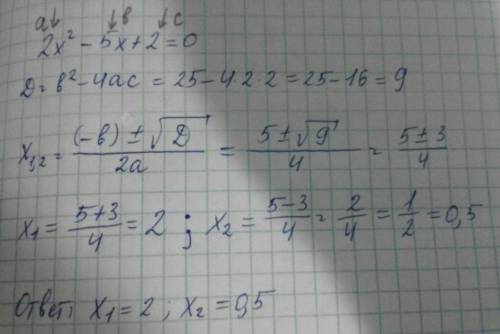 a↓ ↓в ↓c
2x² - 5x + 2 = 0
D = в² - 4ac = 25 - 4 2·2 = 25 - 16 = 9
x₁,₂ = (-в) ± √D / 2a = 5 ± √9 / 4 = 5 ± 3 / 4
x₁ = 5+3 / 4 = 2 ; x₂ = 5-3 / 4 = 2/4 = 1/2 = 0,5
Ответ: x₁ = 2 ; x₂ = 0,5